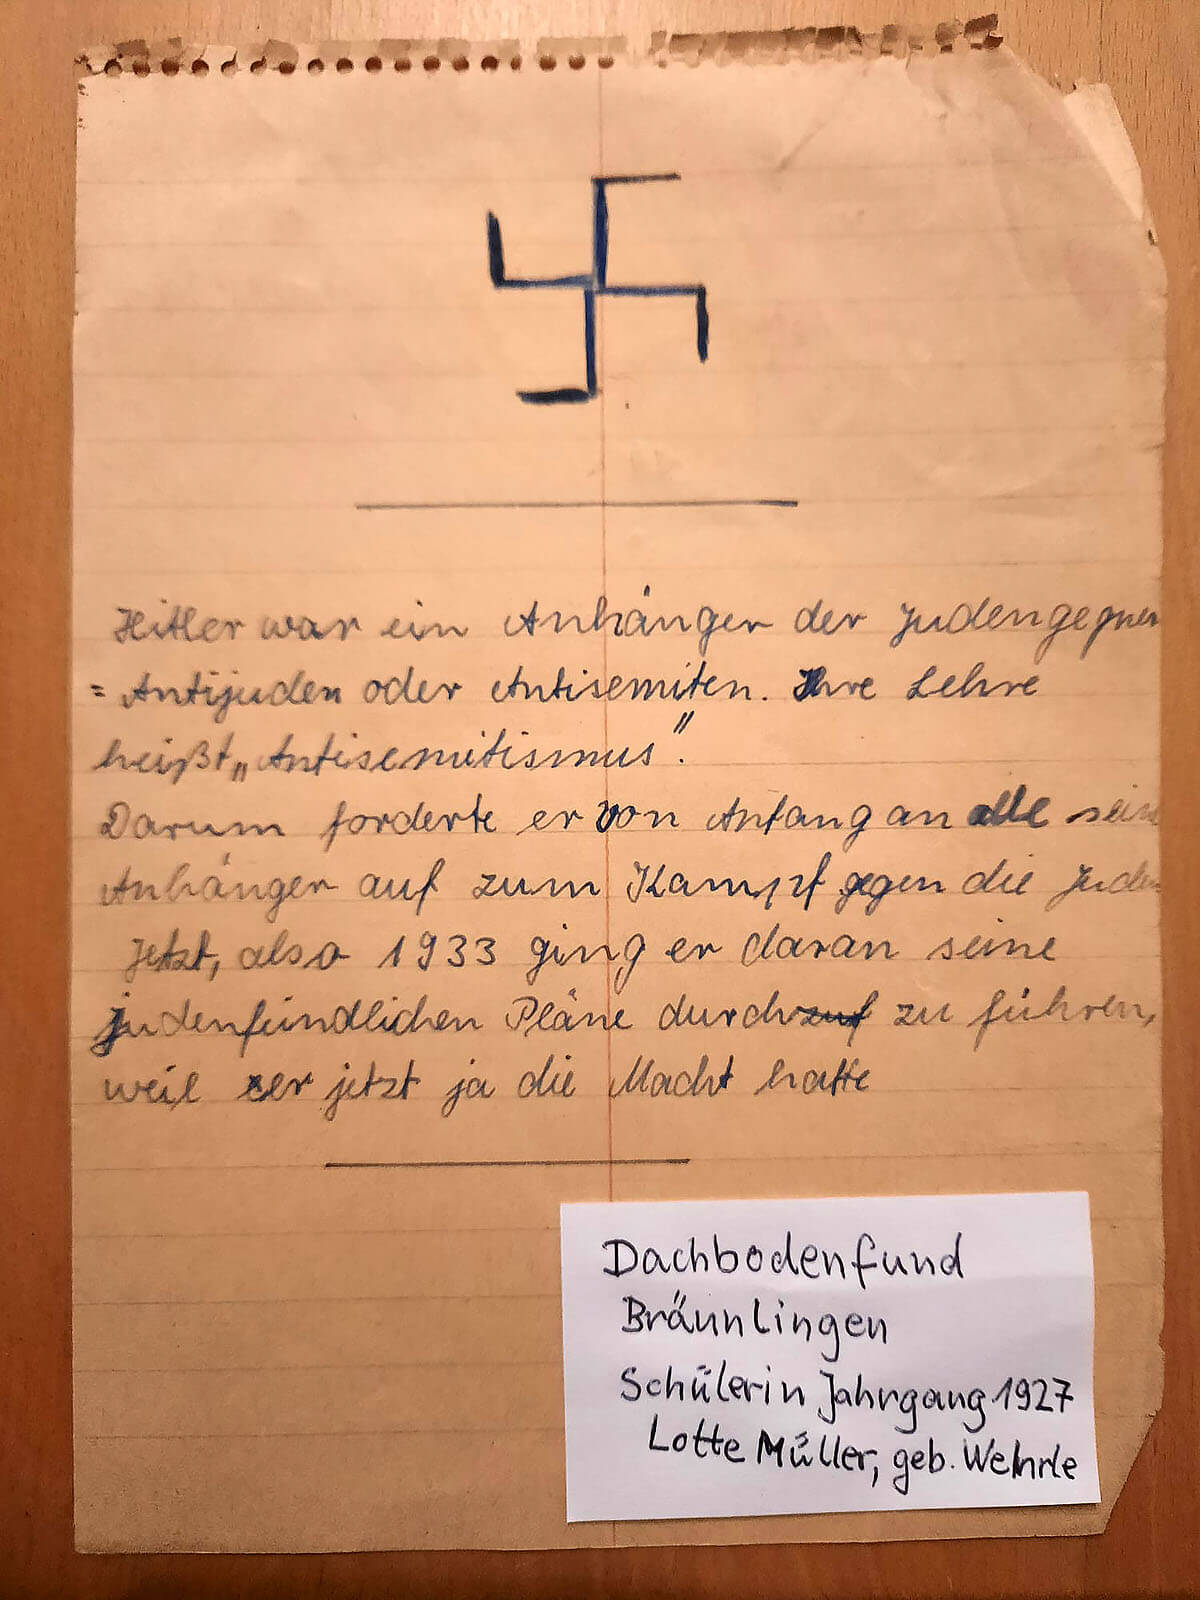 Hitler war ein Anhänger der Judengegner
= Antijuden oder Antisemiten. Ihre Lehre
heißt „Antisemitismus".
Darum forderte er von Anfang an alle seine
Anhänger auf zum Kampf gegen die Juden
Jetzt, also 1933 ging er daran seine
judenfeindlichen Pläne durch zu führen,
weil er jetzt ja die Macht hatte
Dachbodenfund
Bräunlingen
Schülerin Jahrgang 1927
Lotte Müller, geb. Wehrle